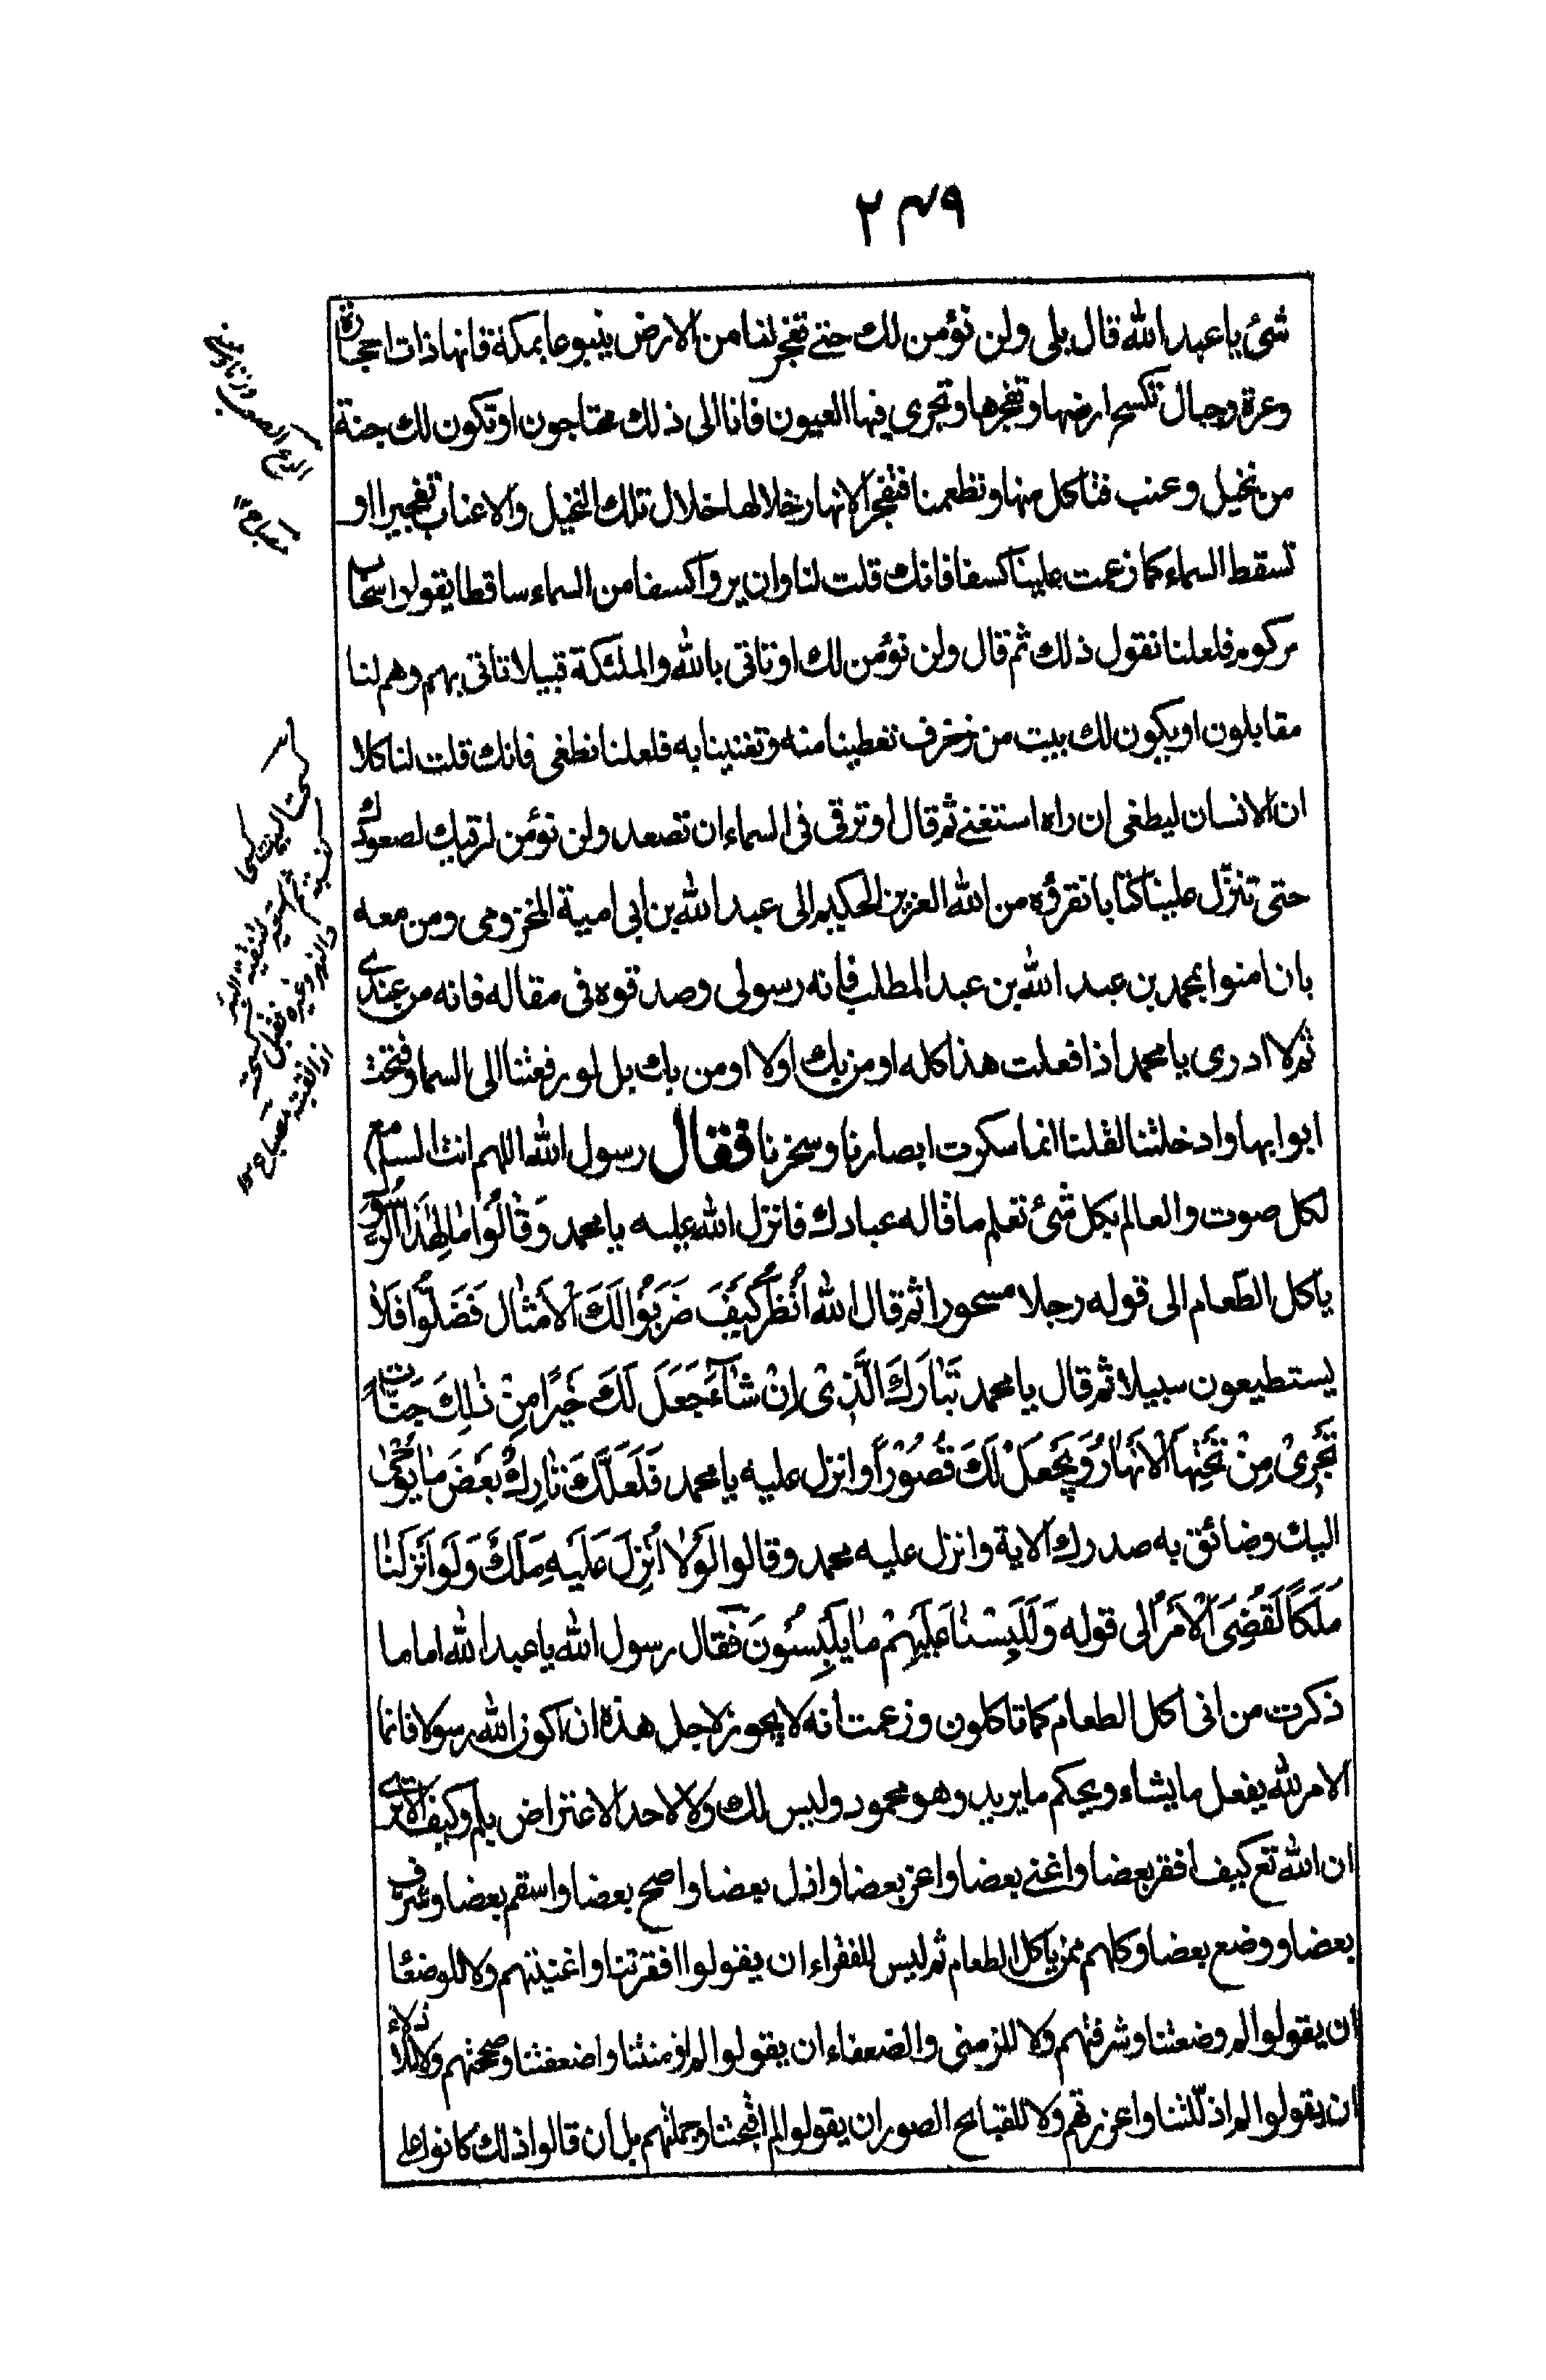 ٢٤٩
شئ يا عبد الله قال بلى ولن نؤمن لك حتى تفجر لنا من الارض ينبوعا بمكة فانها ذات احجارة
وعرة وجبال تكسح ارضها وتحفرها وتجرى فيها العيون فانا الى ذلك محتاجون او تكون لك جنة
من نخيل وعنب فتاكل منها وتطعمنا فتفجر الانهار خلالها خلال تلك النخيل والاعناب تفجيرا او
تسقط السماء كما زعمت علينا كسفا فانك قلت لنا وان يروا كسفا من السماء ساقطا يقولوا سحاب
مركوم فلعلنا نقول ذلك ثم قال ولن نؤمن لك او تاتى بالله والملئكة قبيلا تاتى بهم وهم لنا
مقابلون او يكون لك بيت من زخرف تعطينا منه وتغنينا به فلعلنا نطغى فانك قلت لنا كلا
ان الانسان ليطغى ان راه استغنى ثم قال او ترقى فى السماء ان تصعد ولن نؤمن لرقيك لصعودك
حتى تنزل علينا كتابا نقرؤه من الله العزيز الحكيم الى عبد الله بن ابى امية المخزومى ومن معه
بان امنوا بمحمد بن عبد الله بن عبد المطلب فانه رسولى وصدقوه فى مقاله فانه من عندى
ثم لا ادرى يا محمد اذا فعلت هذا كله اومن بك اولا اومن بك بل لو رفعتنا الى السما وفتحت
ابوابها وادخلتنا لقلنا انما سكرت ابصارنا وسحرتنا فقال رسول الله اللهم انت السامع
لكل صوت والعالم بكل شئ تعلم ما قاله عبادك فانزل الله عليه يا محمد وَقَالُوا مَالِ هٰذَا الرَّسُولِ
ياكل الطعام الى قوله رجلا مسحورا ثم قال الله اُنْظُرْ كَيْفَ ضَرَبُوا لَكَ الْاَمْثَالَ فَضَلُّوا فَلَا
يستطيعون سبيلا ثم قال يا محمد تَبَارَكَ الَّذِى اِنْ شَآءَ جَعَلَ لَكَ خَيْرًا مِنْ ذٰلِكَ جَنَّاتٍ
تَجْرِى مِنْ تَحْتِهَا الْاَنْهَارُ وَيَجْعَلْ لَكَ قُصُوْرًا وانزل عليه يا محمد فَلَعَلَّكَ تَارِكٌ بَعْضَ مَا يُوْحٰى
اليك وضائق به صدرك الاية وانزل عليه محمد وقالوا لَوْلَا اُنْزِلَ عَلَيْهِ مَلَكٌ وَلَوْ اَنْزَلْنَا
مَلَكًا لَقُضِىَ الْاَمْرُ الى قوله وَلَلَبَسْنَا عَلَيْهِمْ مَا يَلْبِسُونَ فقال رسول الله يا عبد الله اما ما
ذكرت من انى اكل الطعام كما تاكلون وزعمت انه لا يجوز لاجل هذه ان اكون لله رسولا فانما
الامر لله يفعل ما يشاء ويحكم ما يريد وهو محمود وليس لك ولا لاحد الاعتراض بلم وكيف الا ترى
ان الله تع كيف افقر بعضا واغنى بعضا واعز بعضا واذل بعضا واصح بعضا واسقم بعضا وشرف
بعضا ووضع بعضا وكلهم ممن ياكل الطعام ثم ليس للفقراء ان يقولوا افقرتنا واغنيتهم ولا للوضعا
ان يقولوا لم وضعتنا وشرفتهم ولا للزمنى والضعفاء ان يقولوا لم ازمنتنا واضعفتنا وصححتهم ولا للاذلاء
ان يقولوا لم اذللتنا واعززتهم ولا للقبايح الصور ان يقولوا لم اقبحتنا وجملتهم بل ان قالوا ذلك كانوا على